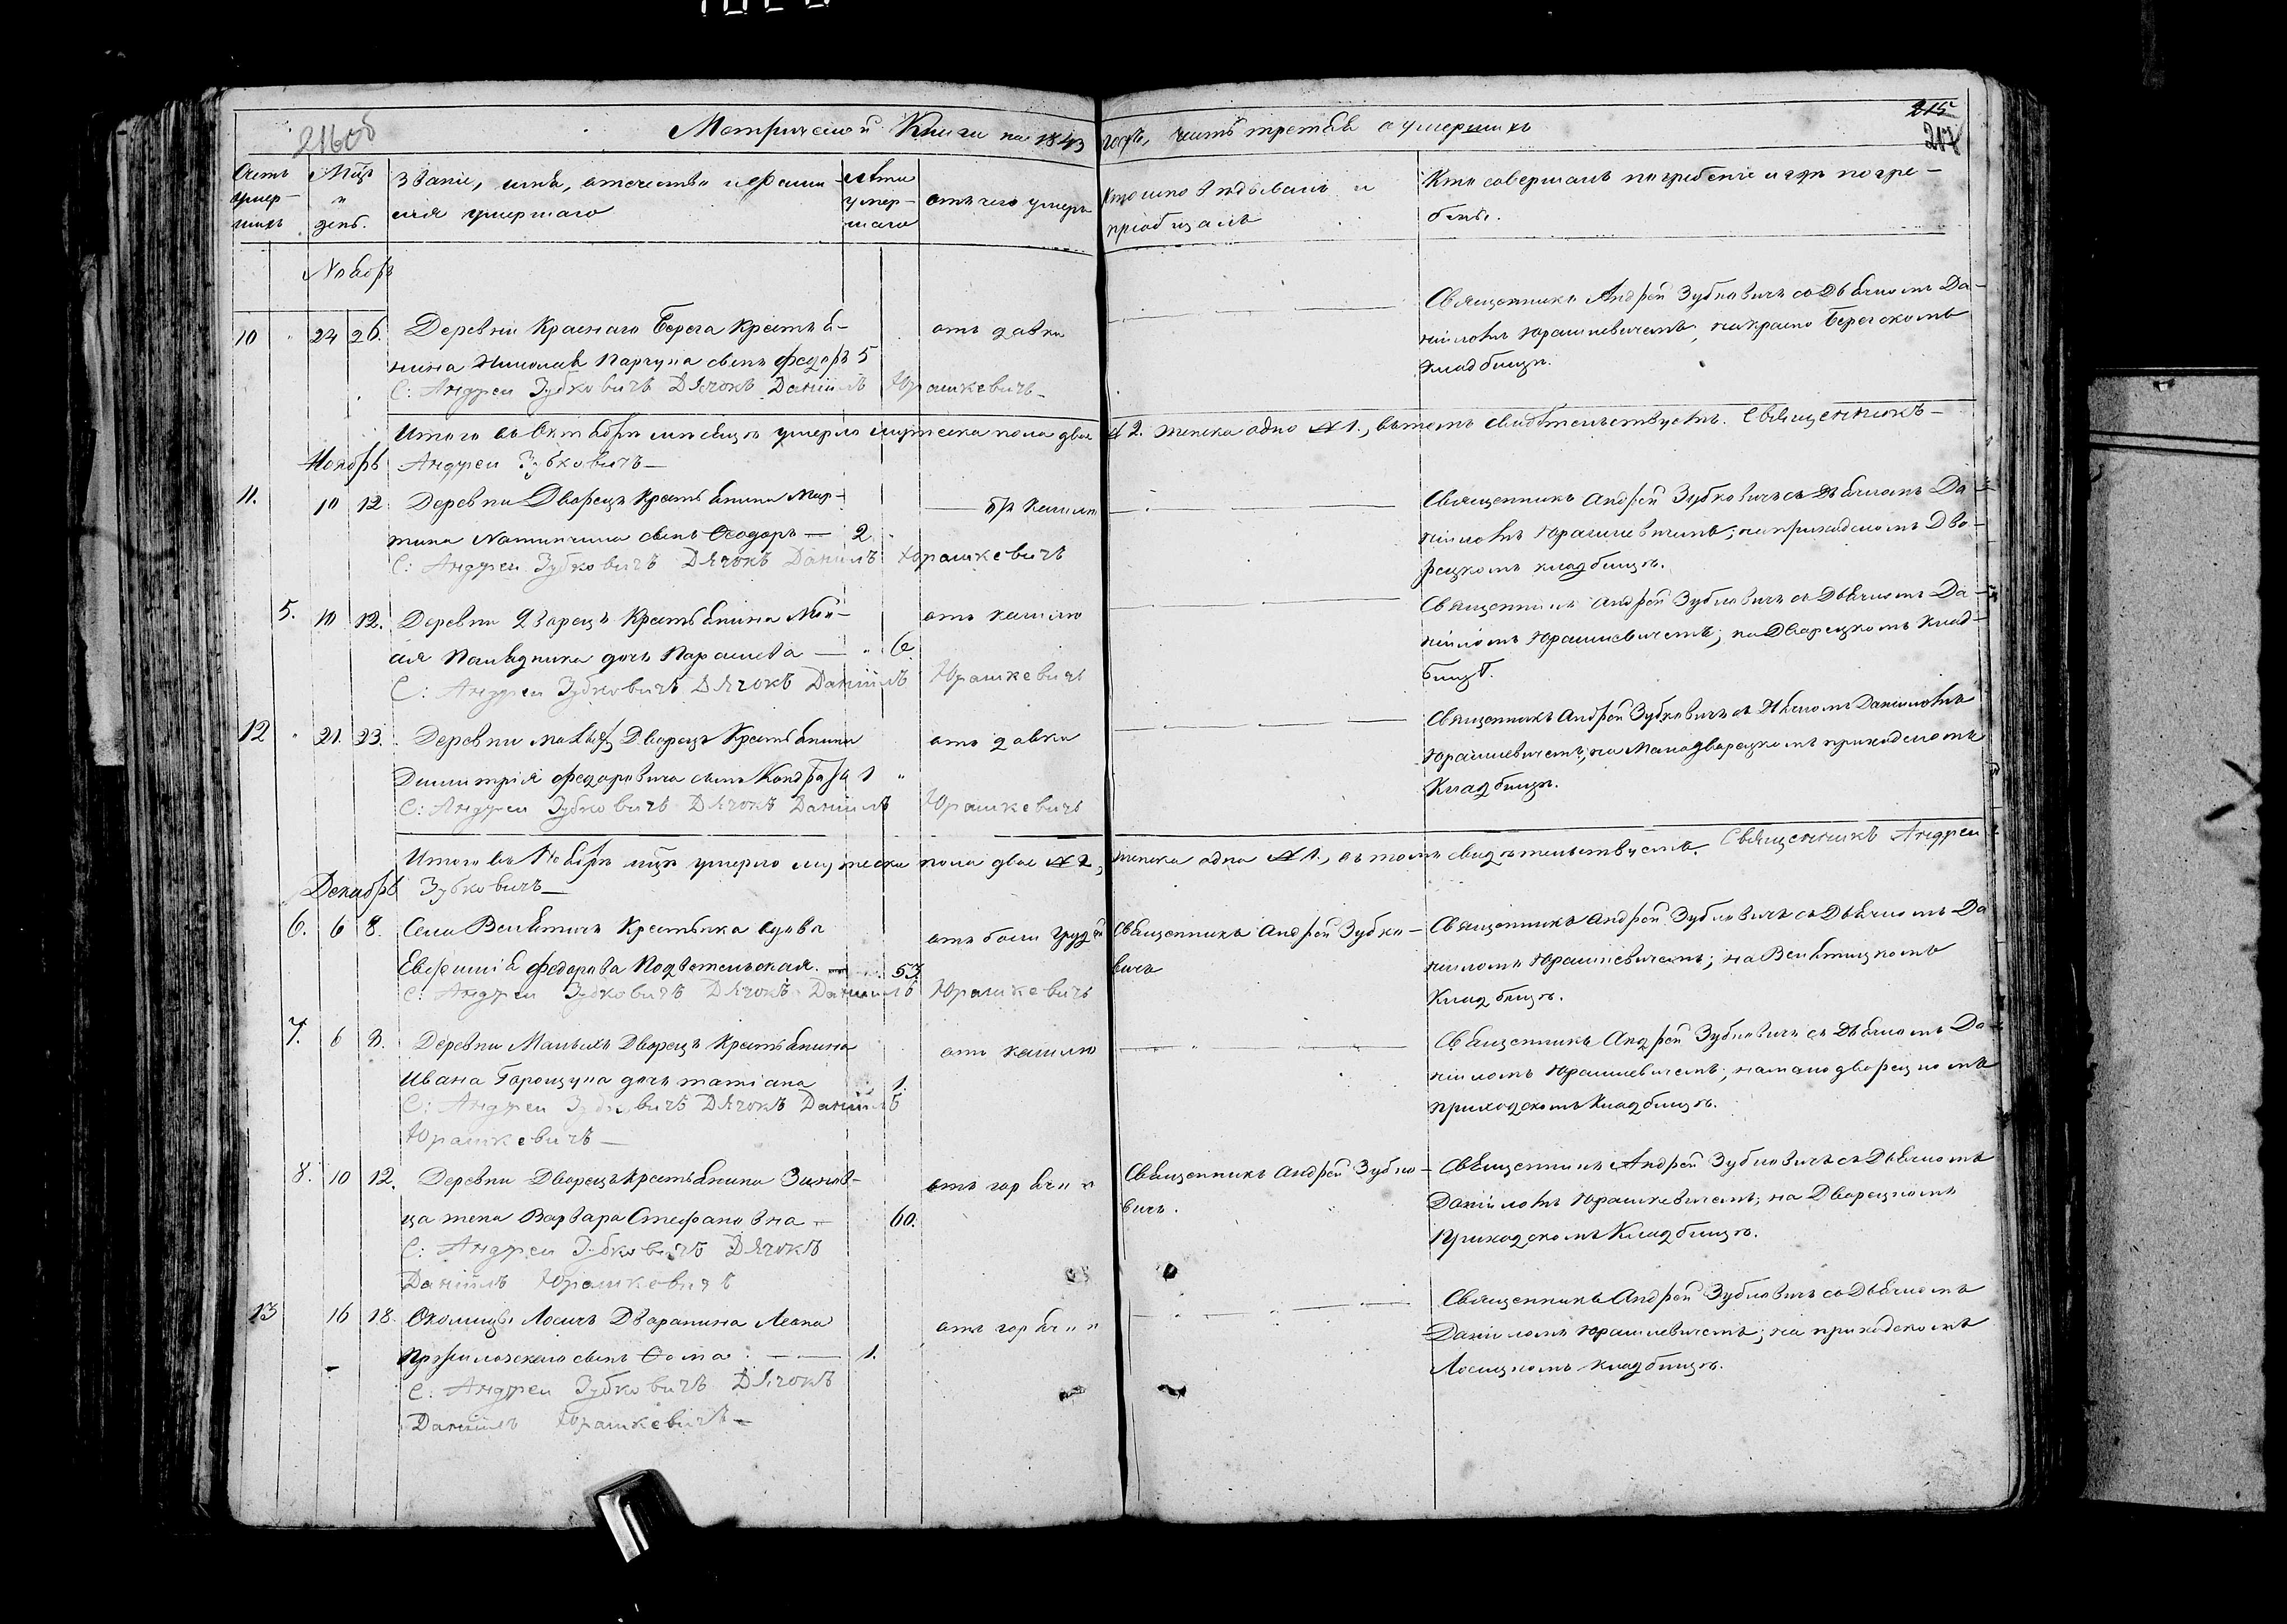 216об
215
217
Метрической Книги на 1843 годъ, часть третья о умершихъ
Счетъ умер-шихъ
Мцъ и день.
Званіе, имя, отечество и фами-
лія умершаго
Лѣта умер-шаго
отъ чего умеръ
Кто исповѣдывалъ и
пріобщалъ
Кто совершалъ погребеніе и гдѣ погре-
бены.
10 24 26. Деревни Краснаго Берега Крестья-
нина Николая сынъ Федоръ 5
отъ давки
С: Андреи Зубковичъ Дячокъ Даніилъ Юрашкевичъ
Священникъ Андрей Зубковичъ съ Дьячкомъ Да-
ніиломъ Юрашкевичемъ, на Красно Берегскомъ
Кладбищѣ.
Итого въ Октябрѣ мѣсяцѣ умерло мужеска пола двое № 2. женска одно № 1., въ томъ свидѣтельствуетъ. Священникъ
Ноябрь Андреи Зубковичъ
11. 10 12 Деревни Дворецъ Крестьянина Мар-
тина сынъ Ѳеодоръ 2.
кашлю
С: Андреи Зубковичъ Дячокъ Даніилъ Юрашкевичъ
Священникъ Андрей Зубковичъ съ Дьячкомъ Да-
ніиломъ Юрашкевичемъ, на приходскомъ Дво-
рецкомъ кладбищѣ.
5. 10 12. Деревни Дворецъ Крестьянина
дочь 6
отъ кашлю
С: Андреи Зубковичъ Дячокъ Даніилъ Юрашкевичъ
Священникъ Андрей Зубковичъ съ Дьячкомъ Да-
ніиломъ Юрашкевичемъ; на Дворецкомъ Клад-
бищѣ.
12 21. 23. Деревни Малыхъ Дворецъ Крестьянина
Димитрія Федоровича сынъ Кондратъ 1
отъ давки
С: Андреи Зубковичъ Дячокъ Даніилъ Юрашкевичъ
Священникъ Андрей Зубковичъ съ Дьячкомъ Даніиломъ
Юрашкевичемъ; на Малодворецкомъ приходскомъ
Кладбищѣ.
Итого въ Ноябрѣ мцѣ умерло мужеска пола двое № 2, женска одна № 1., въ томъ свидѣтельствуетъ. Священникъ Андреи
Декабрь Зубковичъ
6. 6 8. Села Велятичъ Крестьянка вдова
Евфимія Федорова 53.
отъ боли грудей
С: Андреи Зубковичъ Дячокъ Даніилъ Юрашкевичъ
Священникъ Андрей Зубко-
вичъ
Священникъ Андрей Зубковичъ съ Дьячкомъ Да
ніиломъ Юрашкевичемъ; на Велятицкомъ
Кладбищѣ.
7. 6 8. Деревни Малыхъ Дворецъ Крестьянина
Ивана дочь татіана 1.
отъ кашлю
С: Андреи Зубковичъ Дячокъ Даніилъ
Юрашкевичъ
Священникъ Андрей Зубковичъ съ Дьячкомъ Да
ніиломъ Юрашкевичемъ, на малодворецкомъ
приходскомъ Кладбищѣ.
8. 10 12. Деревни Дворецъ Крестьянина
жена Варвара Стефановна 60.
отъ горячки
С: Андреи Зубковичъ Дячокъ
Даніилъ Юрашковичъ
Священникъ Андрей Зубко-
вичъ.
Священникъ Андрей Зубковичъ съ Дьячкомъ
Даніиломъ Юрашкевичемъ, на Дворецкомъ
Приходскомъ Кладбищѣ.
13 16 18. Околицы Лосичъ Дворянина
сынъ Ѳома 1.
отъ горячки
С: Андреи Зубковичъ Дячокъ
Даніилъ Юрашкевичъ
Священникъ Андрей Зубковичъ съ Дьячкомъ
Даніиломъ Юрашкевичемъ; на приходскомъ
Лосицкомъ кладбищѣ.